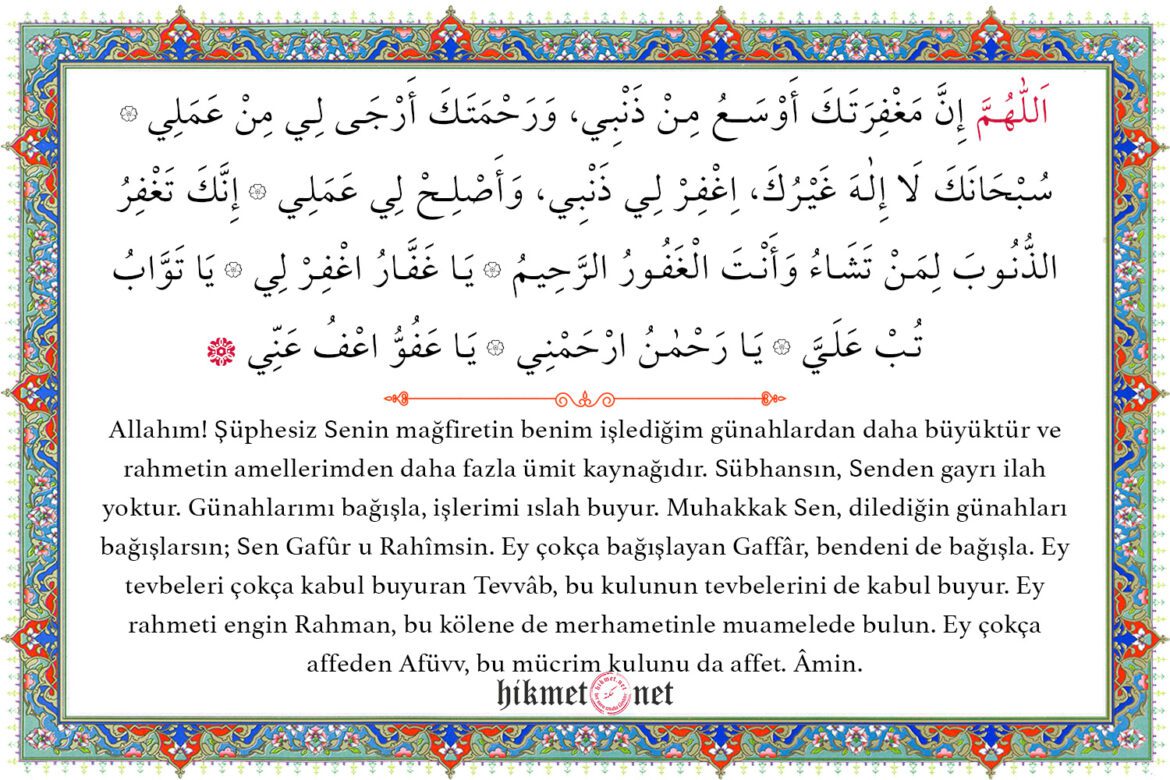 اَللّٰهُمَّ إِنَّ مَغْفِرَتَكَ أَوْسَعُ مِنْ ذَنْبِي، وَرَحْمَتَكَ أَرْجَى لِي مِنْ عَمَلِي ۞
سُبْحَانَكَ لَا إِلٰهَ غَيْرُكَ، اِغْفِرْ لِي ذَنْبِي، وَأَصْلِحْ لِي عَمَلِي ۞ إِنَّكَ تَغْفِرُ
الذُّنُوبَ لِمَنْ تَشَاءُ وَأَنْتَ الْغَفُورُ الرَّحِيمُ ۞ يَا غَفَّارُ اغْفِرْ لِي ۞ يَا تَوَّابُ
تُبْ عَلَيَّ ۞ يَا رَحْمٰنُ ارْحَمْنِي ۞ يَا عَفُوُّ اعْفُ عَنِّي
Allahım! Şüphesiz Senin mağfiretin benim işlediğim günahlardan daha büyüktür ve
rahmetin amellerimden daha fazla ümit kaynağıdır. Sübhansın, Senden gayrı ilah
yoktur. Günahlarımı bağışla, işlerimi ıslah buyur. Muhakkak Sen, dilediğin günahları
bağışlarsın; Sen Gafûr u Rahîmsin. Ey çokça bağışlayan Gaffâr, bendeni de bağışla. Ey
tevbeleri çokça kabul buyuran Tevvâb, bu kulunun tevbelerini de kabul buyur. Ey
rahmeti engin Rahman, bu kölene de merhametinle muamelede bulun. Ey çokça
affeden Afüvv, bu mücrim kulunu da affet. Âmin.
hikmet net